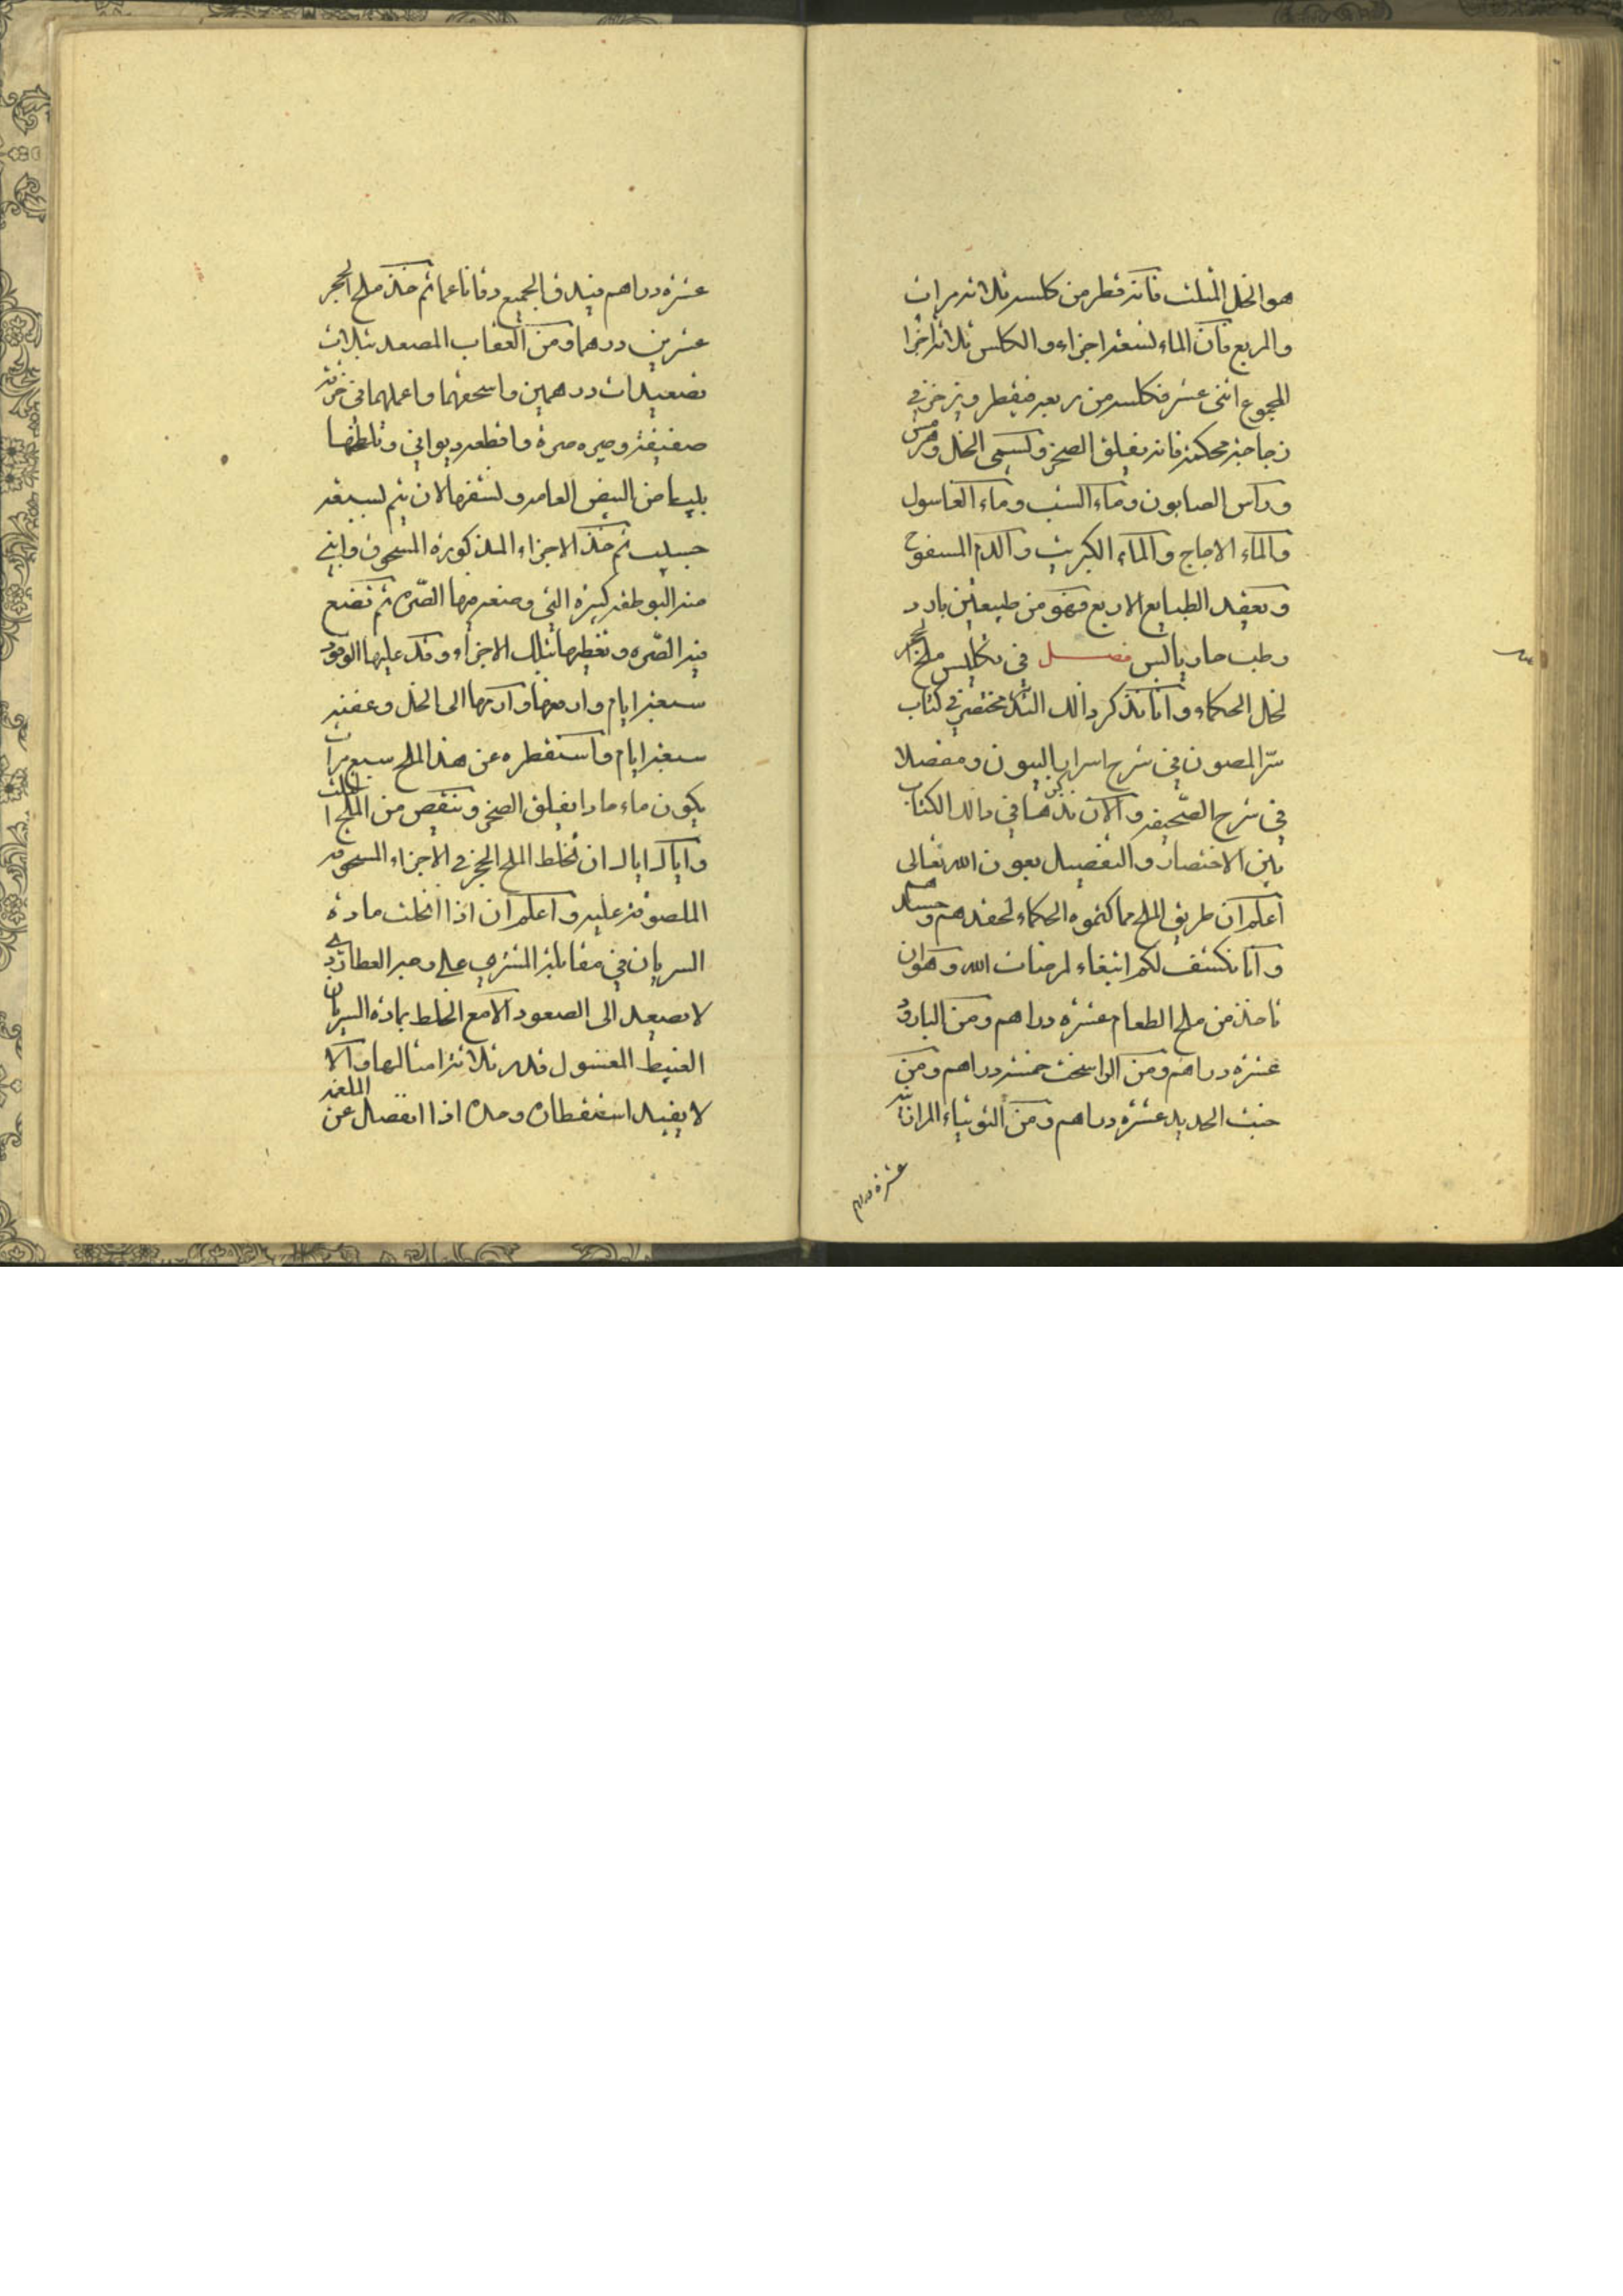 هو الخل المثلث فانه قطر من كلسه ثلاثه مرات
والمربع فان الماء تسعة اجزاء والكلس ثلاثة اجزا
المجموع اثنى عشر فكلسه من ربعه فيقطر ويخزن في
زجاجة محكمة فانه يفلق الصخر ويسمى الخل
وراس الصابون وماء الشب وماء الغاسول
والماء الاجاج والماء الكبريت والدم المسفوح
ويعقد الطبايع الاربع فهو من طبيعتين بارد
رطب حار يابس فصل في تكليس ملح الحجر
لخل الحكماء وانا نذكر ذالك مختصر في كتاب
سر المصون في شرح اسرار البيون ومفصلا
في شرح الصحيفة والان نذكرها في ذالك الكتاب
بين الاختصار والتفصيل بعون الله تعالى
اعلم ان طريق الملح مما كتموه الحكماء لحقدهم وحسدهم
وانا نكشف لكم ابتغاء لمرضات الله وهو ان
تاخذ من ملح الطعام عشرة دراهم ومن البارود
عشرة دراهم ومن الراسخت خمسة دراهم ومن
خبث الحديد عشرة دراهم ومن التوتياء
عشرة دراهم
عشرة دراهم فيدق الجميع دقا ناعما ثم خذ ملح الحجر
عشرين درهما ومن العقاب المصعد بثلاث
تصعيدات درهمين واسحقهما واعملهما في خرقة
صفيقة وصيره صرة واقطعه وتلطخها
بلياض البيض العامد وتنشفها لان يتم لسبعة
ثم خذ الاجزاء المذكورة المسحوق وابني
منه البوطقة كبيرة التي وضعه فيها الصره ثم تضع
فيه الصره وتغطيها بتلك الاجزاء وقد عليها الوقود
سبعة ايام وارفعها وارمها الى الخل وعفنه
سبعة ايام واستقطره عن هذا الملح سبع مرات
يكون ماء حادا يفلق الصخر وينقص من الملح الثلث
واياك اياك ان تخلط الملح الحجر في الاجزاء المسحوقة
الملصوقة عليه واعلم ان اذا انحلت مادة
السريان في مقابلة المشتري على وجه العطارد
لا تصعد الى الصعود الا مع الخلط بمادة السريان
الغبيط المغسول قدر ثلاثة امثالها والا
لا يفيد استقطاره وحده اذا انفصل عن الملغمة